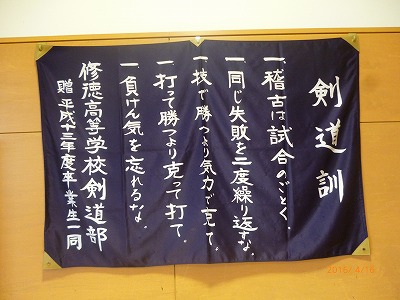 剣道訓
一、稽古は試合のごとく。
一、同じ失敗を二度繰り返すな。
一、技で勝つより気力で克て。
一、打って勝つより克って打て。
一、負けん気を忘れるな。
修徳高等学校剣道部
贈 平成十三年度卒業生一同
2016/4/18